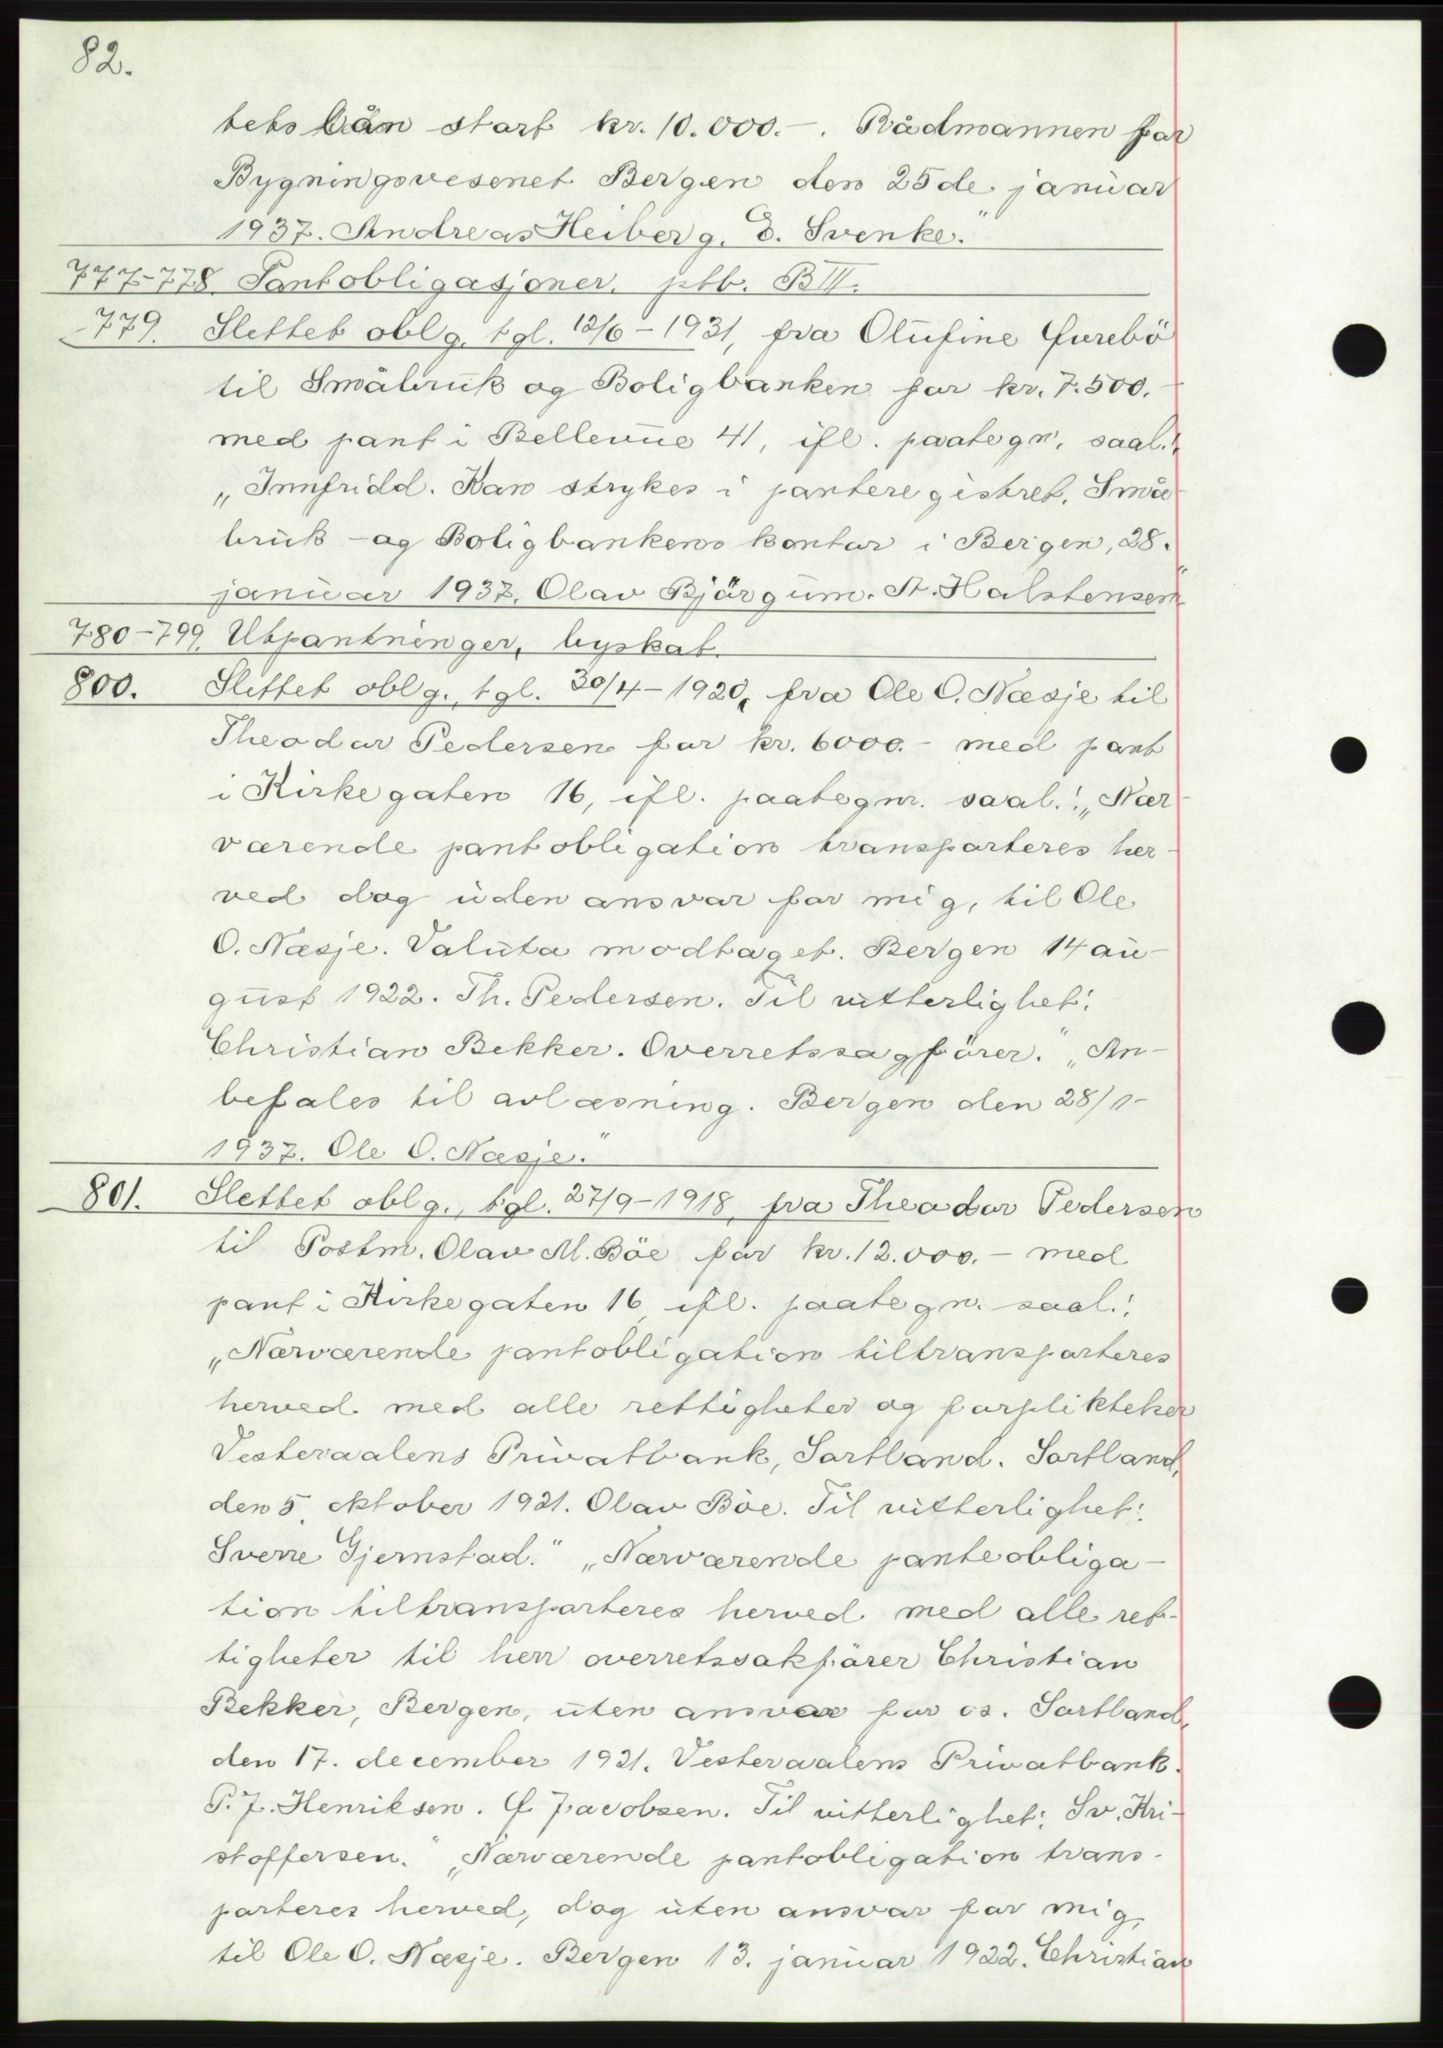 82.
tets lån stort kr. 10.000.-. Rådmannen for
Bygningsvesenet Bergen den 25de januar
1937. Andreas Heiberg. D. Svenke."
777-778 Pantobligasjoner. ptb. B III.
779. Slettet oblg. tgl. 12/6-1931, fra Olufine Furebö
til Småbruk og Boligbanken for kr. 7.500.-
med pant i Bellevue 41, ifl. paategn. saal.:
„Innfridd. Kan strykes i panteregistret. Små
bruk - og Boligbankens kontor i Bergen, 28.
januar 1937. Olav Bjørgum. St. Halstensen"
780-799. Utpantninger, byskat.
800. Slettet oblg., tgl. 30/4-1920, fra Ole O. Næsje til
Theodor Pedersen for kr. 6000.- med pant
i Kirkegaten 16, ifl. paategn. saal.: „Nær
værende pantobligation transporteres her-
ved dog uden ansvar for mig, til Ole
O. Næsje. Valuta modtaget. Bergen 14 au-
gust 1922. Th. Pedersen. Til vitterlighet:
Christian Bekker. Overretssagfører." „An-
befales til avlæsning. Bergen den 28/1-
1937. Ole O. Næsje."
801. Slettet oblg., tgl. 27/9-1918, fra Theodor Pedersen
til Postm. Olav M. Böe for kr. 12.000.- med
pant i Kirkegaten 16 ifl. paategn. saal.:
„Nærværende pantobligation tiltransporteres
herved med alle rettigheter og forplikteher
Vesteraalens Privatbank, Sortland. Sortland,
den 5. oktober 1921. Olav Böe. Til vitterlighet:
Sverre Gjernstad." „Nærværende panteobliga-
tion tiltransporteres herved med alle ret-
tigheter til herr overretssakfører Christian
Bekker, Bergen, uten ansvar for os. Sortland,
den 17. december 1921. Vesteraalens Privatbank.
P. J. Henriksen. F. Jacobsen. Til vitterlighet: Sv. Kri-
stoffersen." „Nærværende pantobligation trans-
porteres herved, dog uten ansvar for mig,
til Ole O. Næsje. Bergen 13. januar 1922. Christian